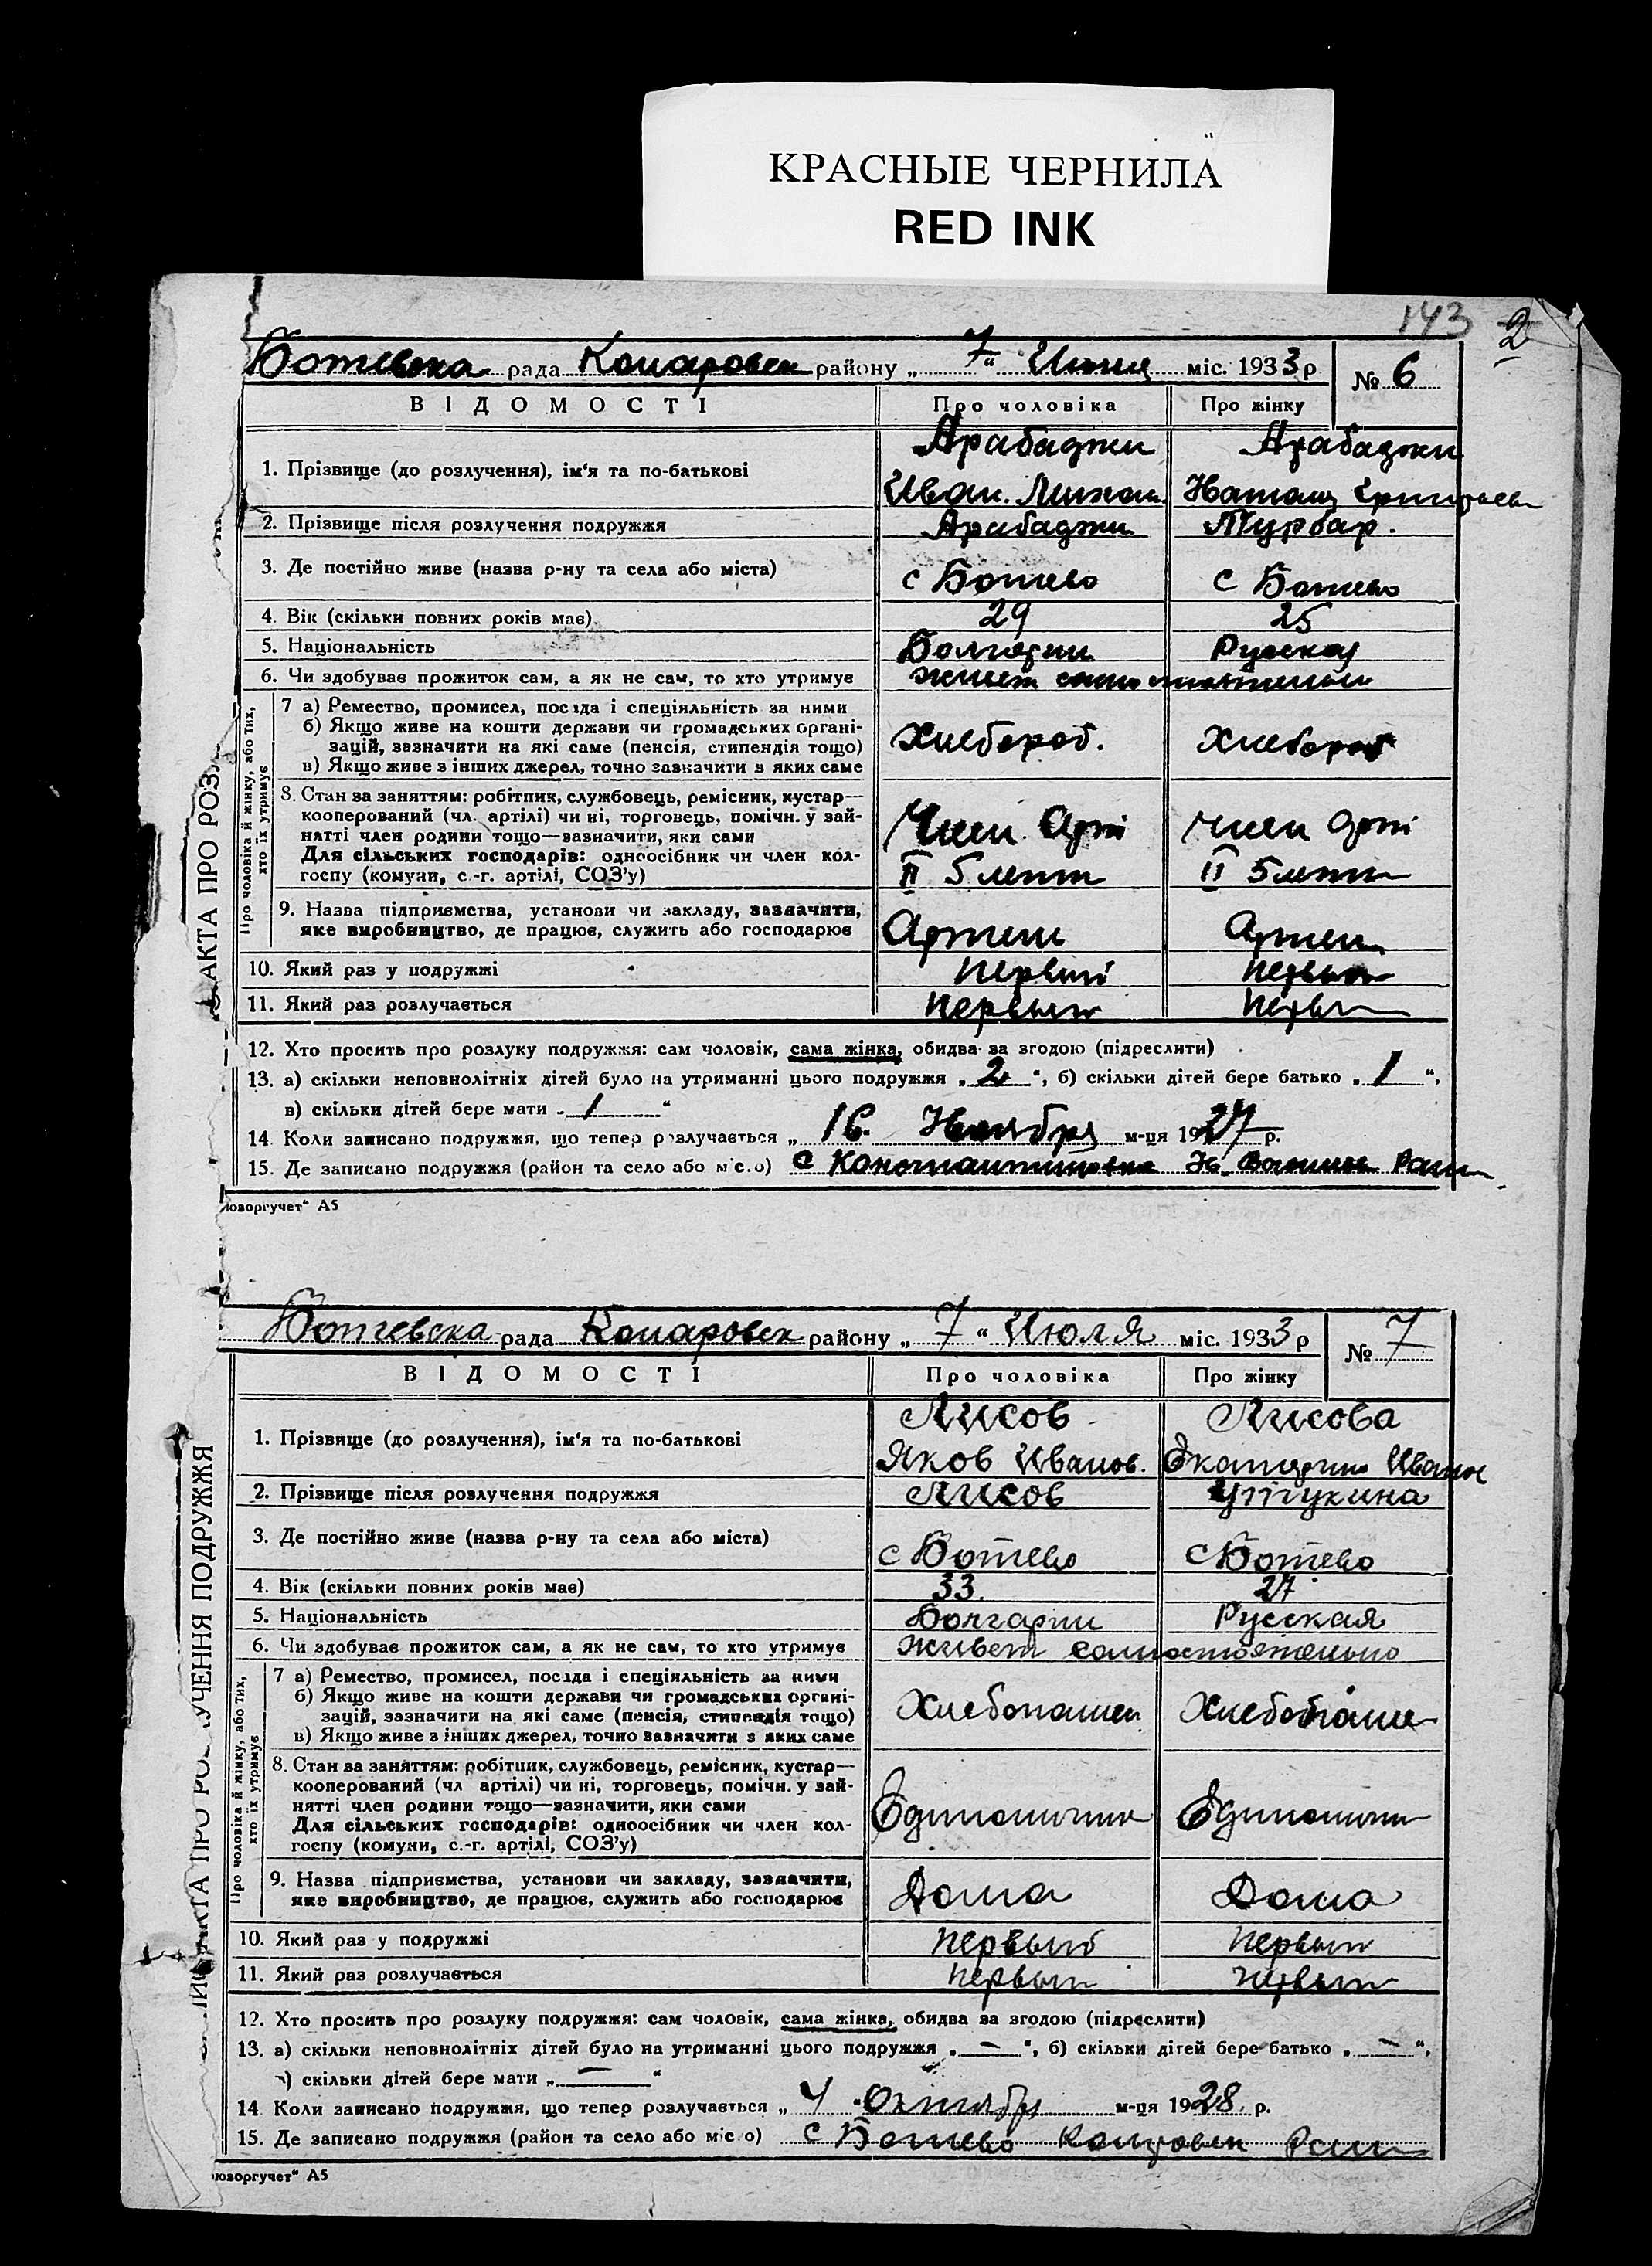 КРАСНЫЕ ЧЕРНИЛА
RED INK
143 2
Ботевска рада Коларовск району „ 7 “ міс. 1933 р № 6
ВІДОМОСТІ Про чоловіка Про жінку
Арабаджи Арабаджи
1. Прізвище (до розлучення), ім'я та по-батькові
Иван. Михаил. Наталия Григорьев
2. Прізвище після розлучення подружжя Арабаджи Турбар.
3. Де постійно живе (назва р-ну та села або міста) с Ботево с Ботево
4. Вік (скільки повних років має). 29 25
5. Національність Болгарин Русская
6. Чи здобуває прожиток сам, а як не сам, то хто утримує живет самостоятельно
Про чоловіка й жінку, або тих, хто їх утримує
7 а) Ремество, промисел, посада і спеціяльність за ними
б) Якщо живе на кошти держави чи громадських органі-
зацій, зазначити на які саме (пенсія, стипендія тощо) Хлебороб. Хлебороб
в) Якщо живе з інших джерел, точно зазначити з яких саме
8. Стан за заняттям: робітник, службовець, ремісник, кустар—
кооперований (чл. артілі) чи ні, торговець, помічн. у зай- Член Арті член арті
нятті член родини тощо—зазначити, яки сами
Для сільських господарів: одноосібник чи член кол-
госпу (комуни, с.-г. артілі, СОЗ'у) II 5 II 5
9. Назва підприємства, установи чи закладу, зазначити,
яке виробництво, де працює, служить або господарює Артель Артель
10. Який раз у подружжі первый первый
11. Який раз розлучається первый первы
АКТА ПРО РОЗ
12. Хто просить про розлуку подружжя: сам чоловік, сама жінка, обидва за згодою (підреслити)
13. а) скільки неповнолітніх дітей було на утриманні цього подружжя „ 2 “, б) скільки дітей бере батько „ 1 “,
в) скільки дітей бере мати „ 1 “
14. Коли записано подружжя, що тепер розлучається „ 16 Ноября м-ця 1927 р.
15. Де записано подружжя (район та село або місто) с Константиновка
оворгучет“ А5
Ботевска рада Коларовск району „ 7 “ Июля міс. 1933 р № 7
ВІДОМОСТІ Про чоловіка Про жінку
Лисов Лисова
1. Прізвище (до розлучення), ім'я та по-батькові
Яков Иванов. Екатерина Иванов
2. Прізвище після розлучення подружжя Лисов
3. Де постійно живе (назва р-ну та села або міста) с Ботево с Ботево
4. Вік (скільки повних років має) 33. 27
5. Національність Болгарин Русская
6. Чи здобуває прожиток сам, а як не сам, то хто утримує живет самостоятельно
Про чоловіка й жінку, або тих, хто їх утримує
7 а) Ремество, промисел, посада і спеціяльність за ними
б) Якщо живе на кошти держави чи громадських органі-
зацій, зазначити на які саме (пенсія, стипендія тощо) Хлебопашец Хлебопаше
в) Якщо живе з інших джерел, точно зазначити з яких саме
8. Стан за заняттям: робітник, службовець, ремісник, кустар—
кооперований (чл артілі) чи ні, торговець, помічн. у зай-
нятті член родини тощо—зазначити, яки сами
Для сільських господарів: одноосібник чи член кол- Единоличник Единоличн
госпу (комуни, с.-г. артілі, СОЗ'у)
9. Назва підприємства, установи чи закладу, зазначити,
яке виробництво, де працює, служить або господарює Дома Дома
10. Який раз у подружжі первый первый
11. Який раз розлучається первый первый
АКТА ПРО РОЗЛУЧЕННЯ ПОДРУЖЖЯ
12. Хто просить про розлуку подружжя: сам чоловік, сама жінка, обидва за згодою (підреслити)
13. а) скільки неповнолітніх дітей було на утриманні цього подружжя „ — “, б) скільки дітей бере батько „ — “,
в) скільки дітей бере мати „ — “
14 Коли записано подружжя, що тепер розлучається „ 4 “ Октября м-ця 1928 р.
15. Де записано подружжя (район та село або місто) с Ботево Коларовск Район
оворгучет“ А5